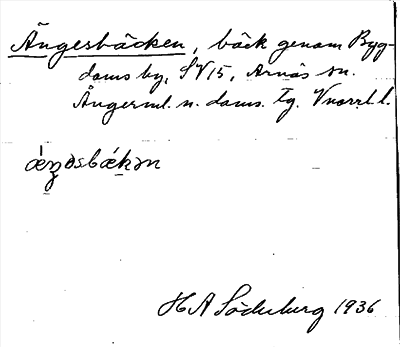 Ängesbäcken, bäck genom Byg-
doms by, SV15, Arnäs sn.
Ångerml. n. doms. tg. Vnorrl. l.
ǽŋəsbǽkən
H A Söderberg 1936